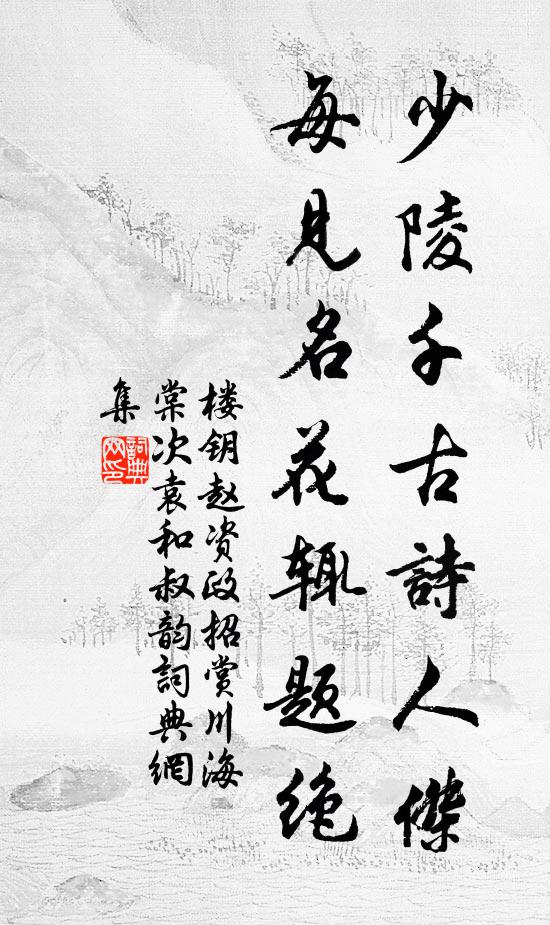 少陵千古詩人傑
每見名花辄题绝
楼钥赵资政招赏川海
棠次袁和叔韵詞典網
集
詞典
网印